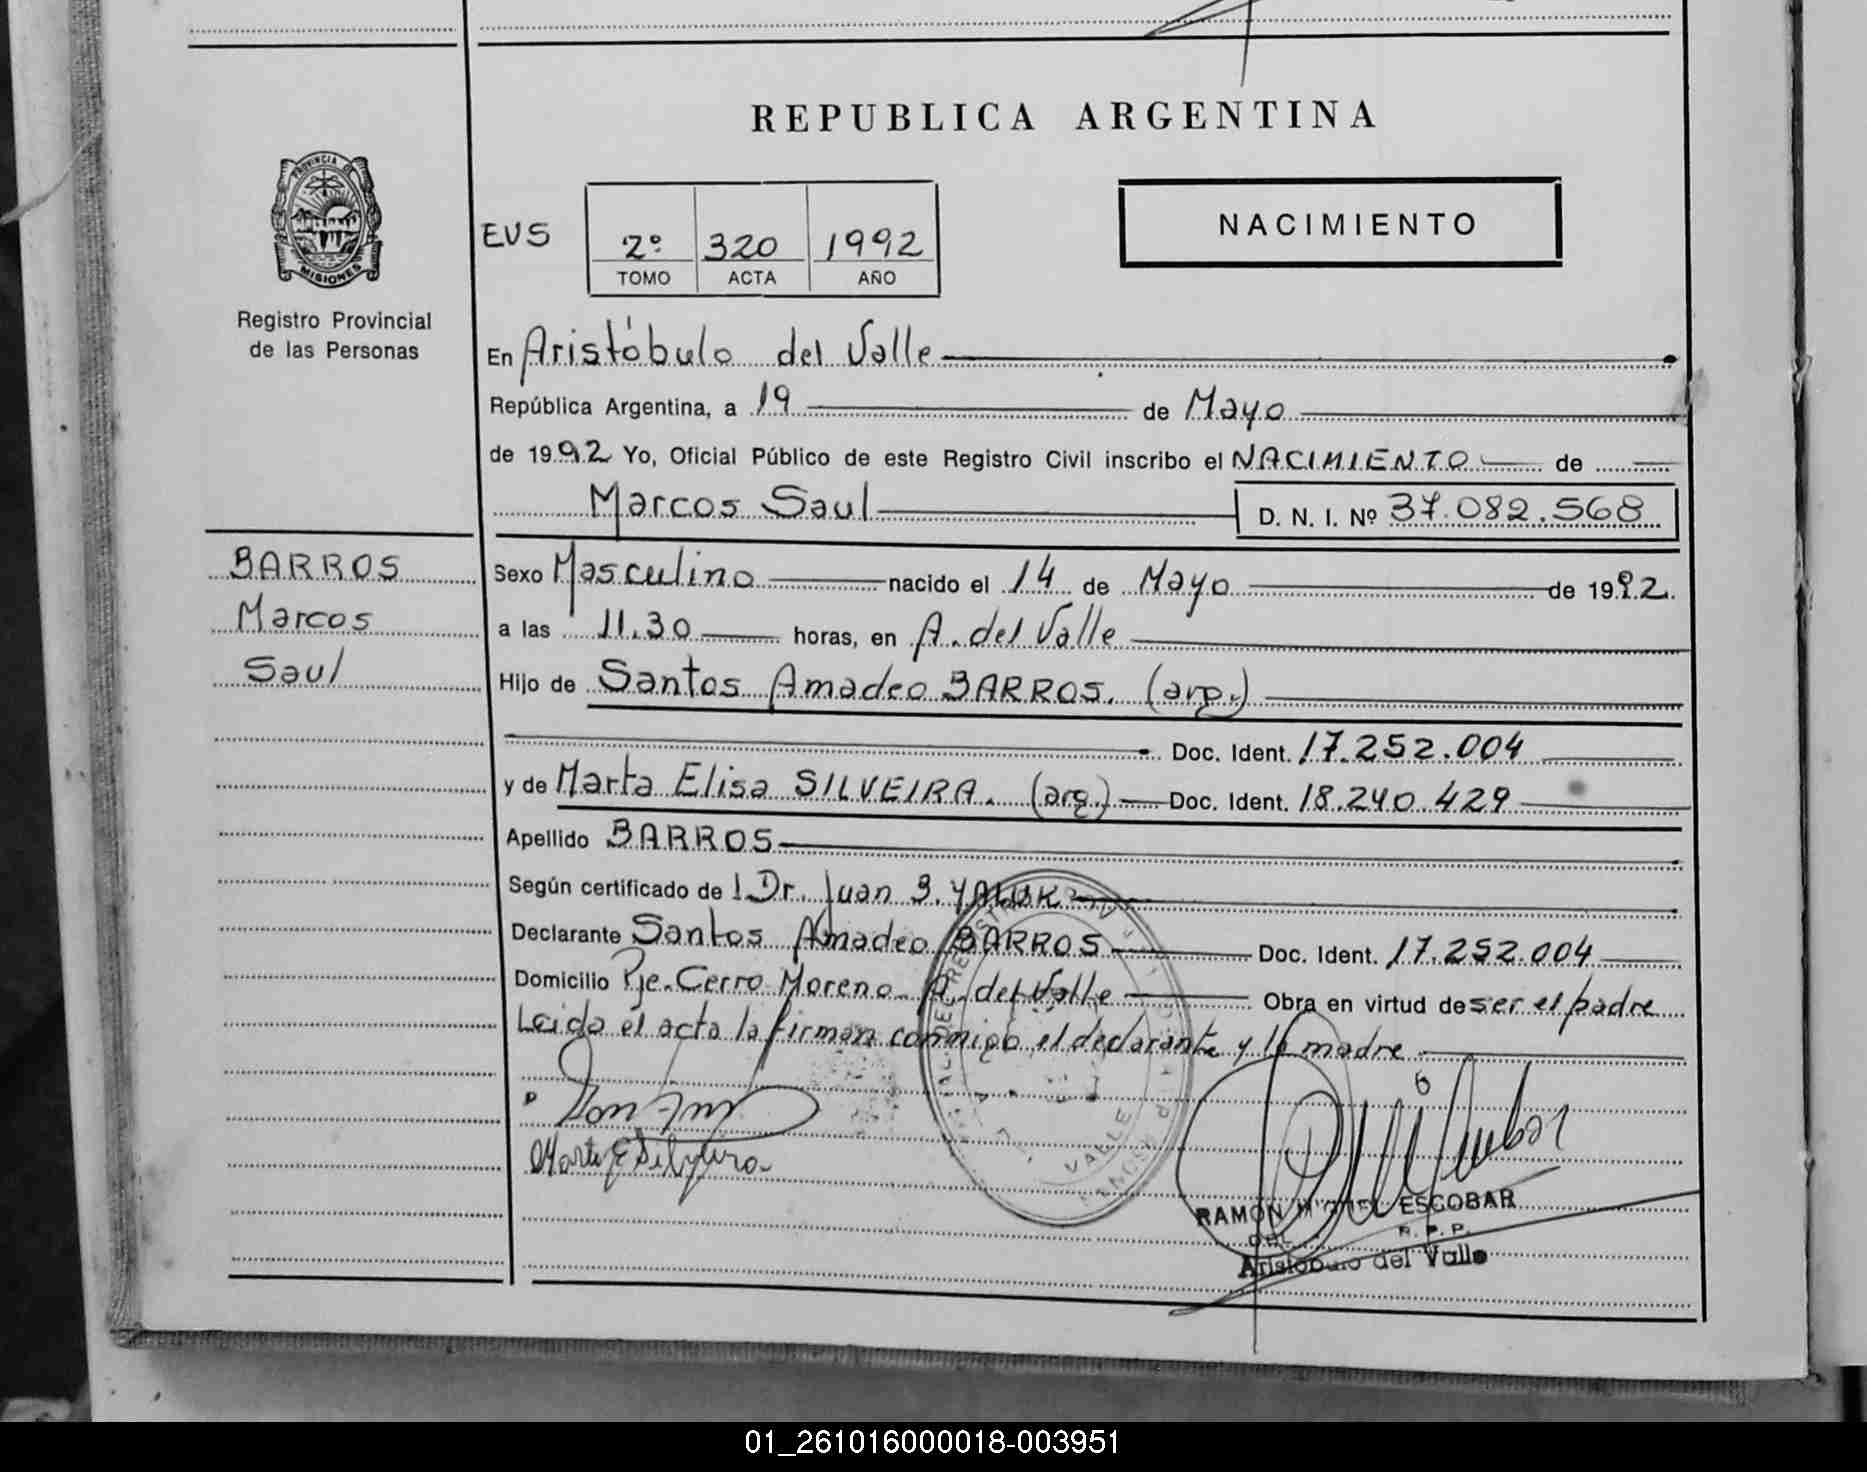 REPUBLICA ARGENTINA
PROVINCIA DE
MISIONES
Registro Provincial
de las Personas
EVS
2º 320 1992
TOMO ACTA AÑO
NACIMIENTO
En Aristóbulo del Valle
República Argentina, a 19 de Mayo
de 1992 Yo, Oficial Público de este Registro Civil inscribo el NACIMIENTO de
Marcos Saul D. N. I. Nº 37.082.568
BARROS
Marcos
Saul
Sexo Masculino nacido el 14 de Mayo de 1992.
a las 11.30 horas, en A. del Valle
Hijo de Santos Amadeo BARROS. (arg.)
Doc. Ident. 17.252.004
y de Marta Elisa SILVEIRA. (arg.) Doc. Ident. 18.240.429
Apellido BARROS
Según certificado de Dr. Juan B. YALUK
Declarante Santos Amadeo BARROS Doc. Ident. 17.252.004
Domicilio Pje. Cerro Moreno A. del Valle Obra en virtud de ser el padre
Leida el acta la firman conmigo el declarante y la madre
Marta E Silveira
VALLE
RAMON MIGUEL ESCOBAR
R. P. P.
Aristobulo del Valle
01_261016000018-003951